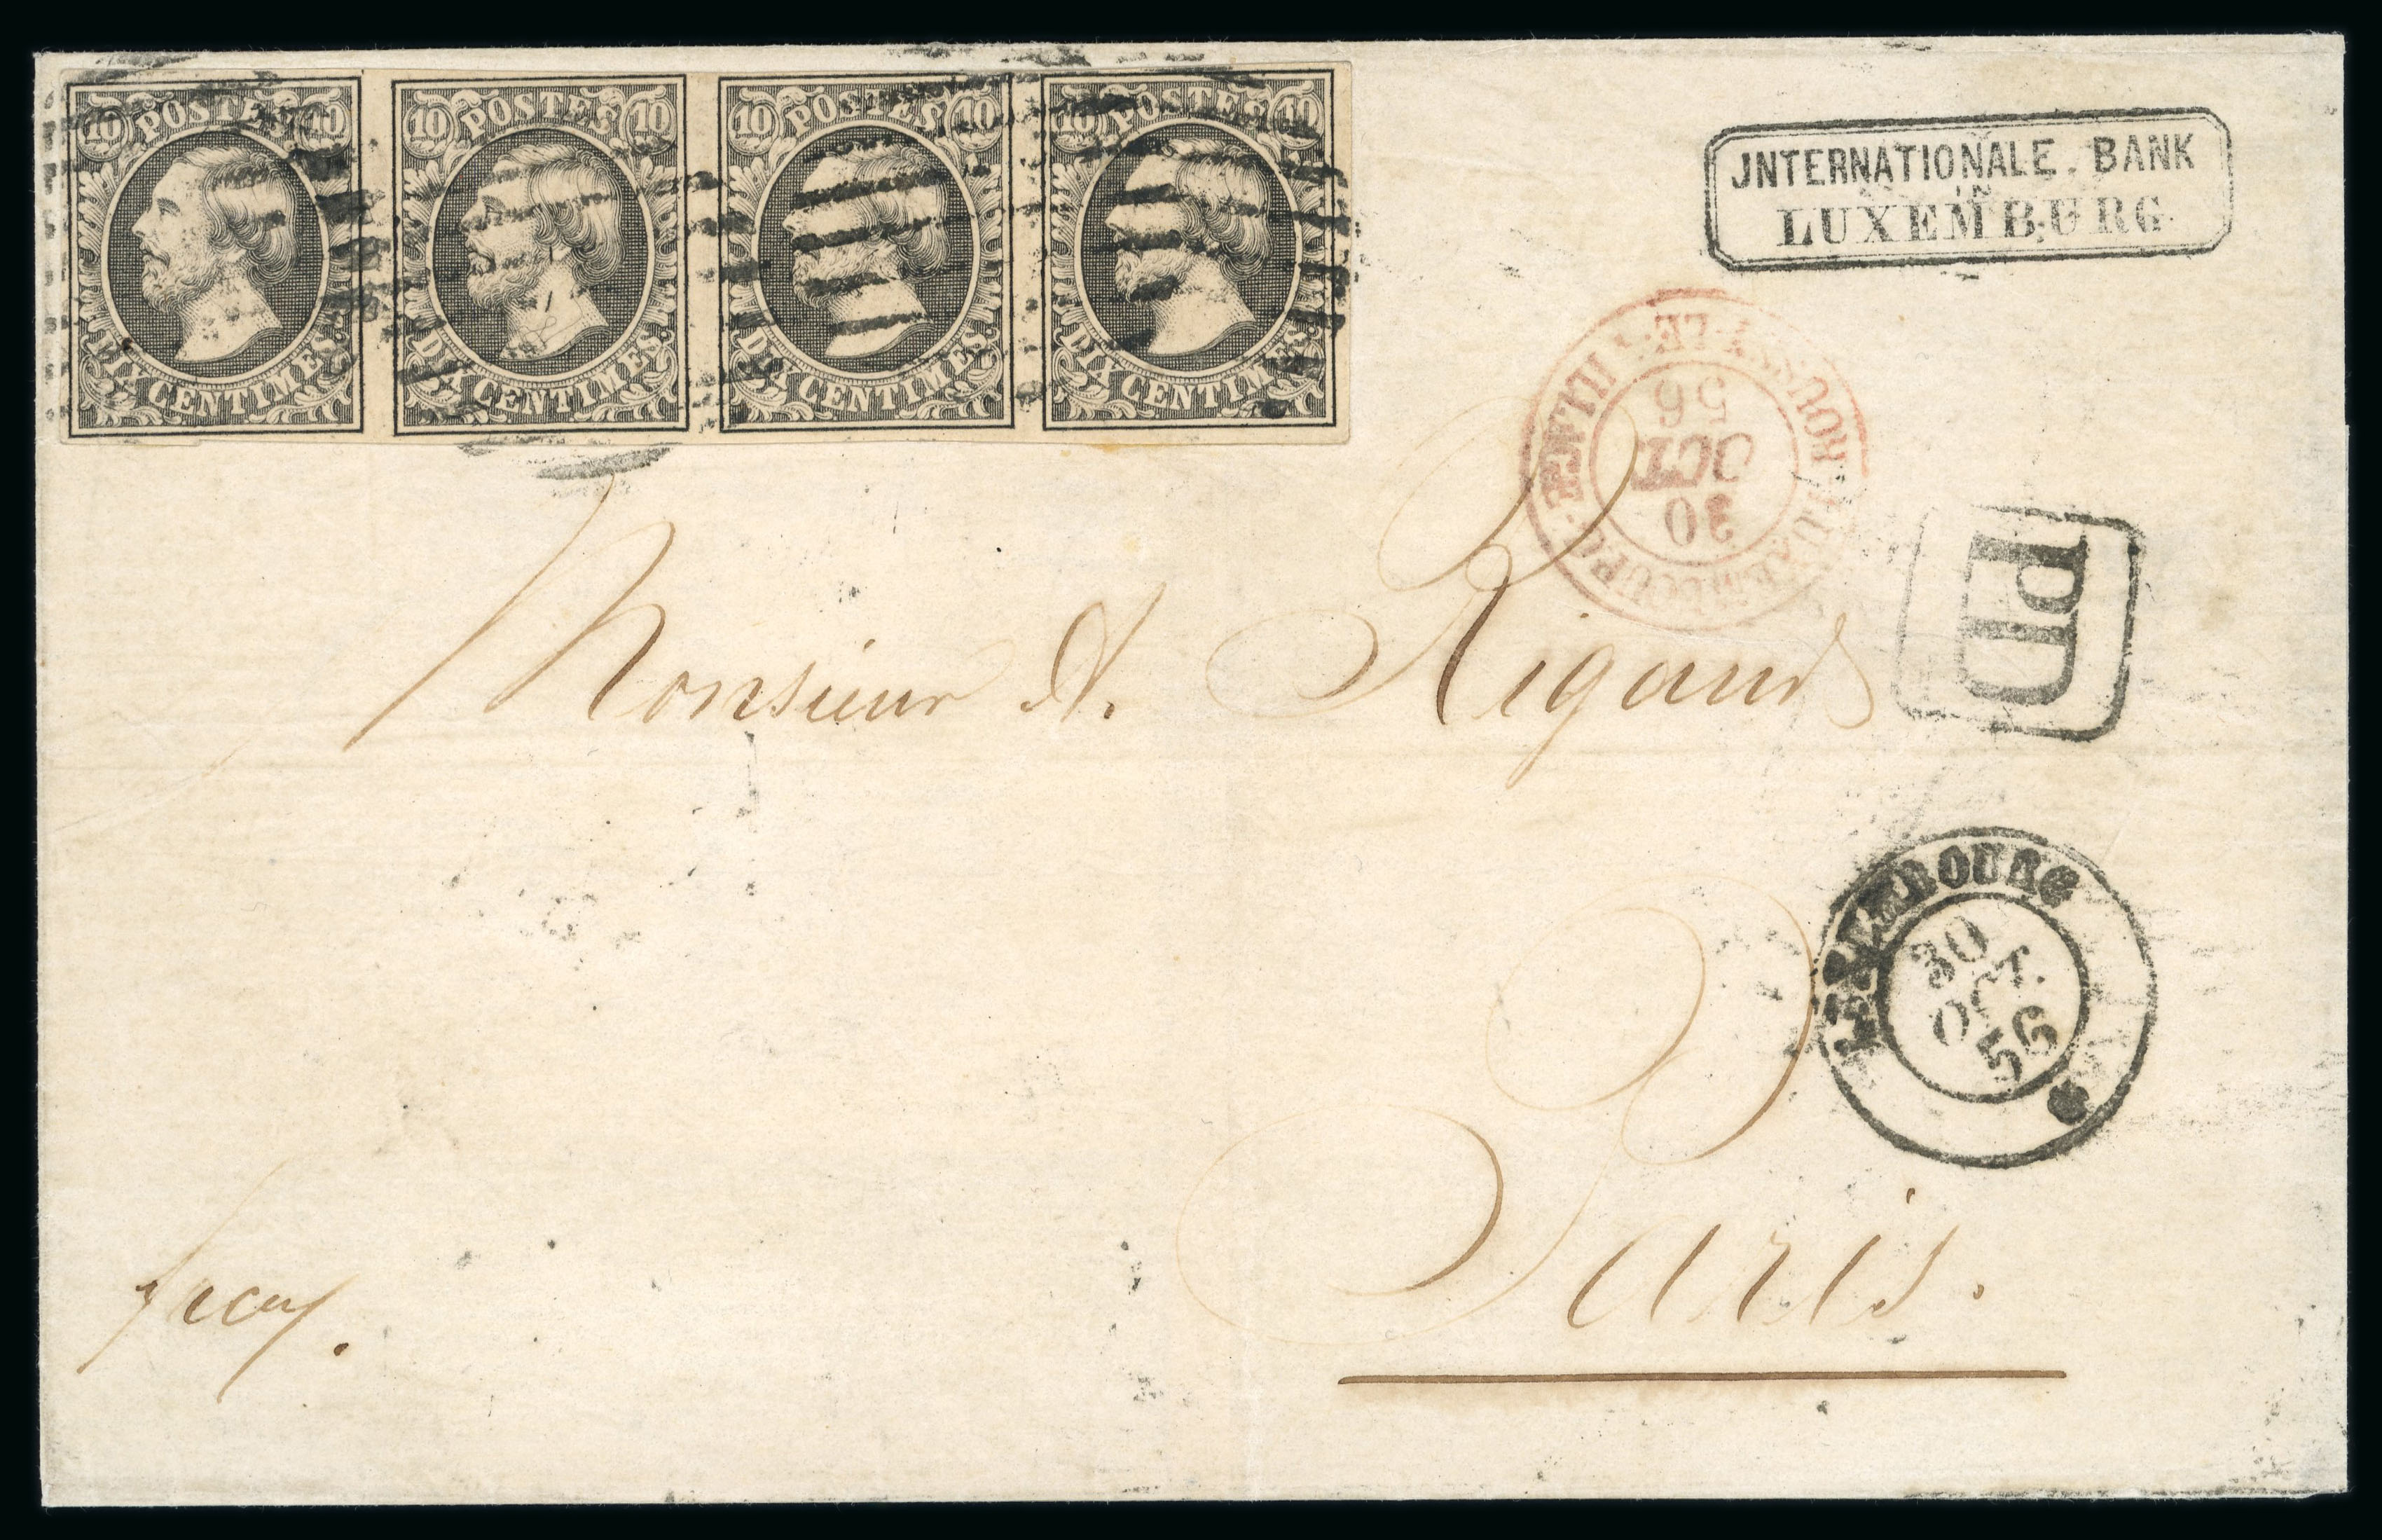 10 POSTES 10
DIX CENTIMES.
10 POSTES 10
DIX CENTIMES.
10 POSTES 10
DIX CENTIMES.
10 POSTES 10
DIX CENTIMES.
JNTERNATIONALE. BANK
IN
LUXEMBURG
30
OCT.
56
PD
Monsieur A. Rigaud
LUXEMBOURG
30
OCT.
56
Paris.